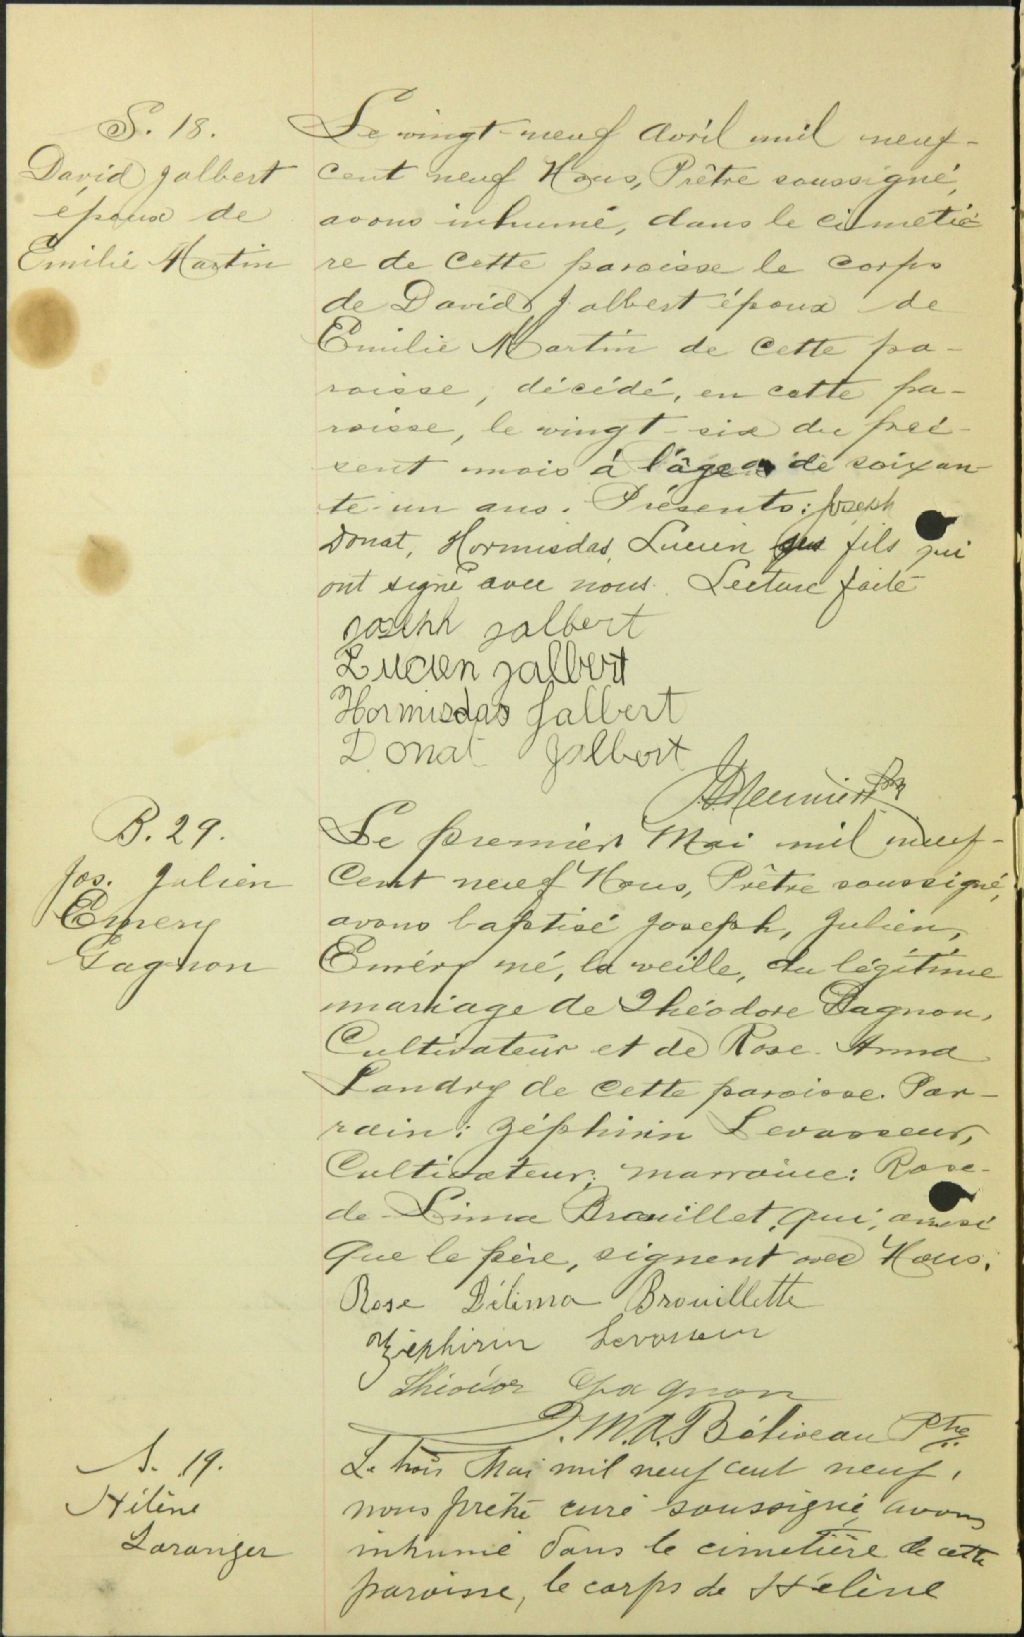 S. 18.
David Jalbert
époux de
Emilie Martin
Le vingt-neuf Avril mil neuf-
cent neuf Nous, Prêtre soussigné,
avons inhumé, dans le cimetiè-
re de cette paroisse le corps
de David Jalbert époux de
Emilie Martin de cette pa-
roisse, décédé, en cette pa-
roisse, le vingt-six du pré-
sent mois à l'âge de soixan-
te-un ans. Présents: Joseph
Donat, Hormisdas, Lucien ses fils qui
ont signé avec nous. Lecture faite
Joseph Jalbert
Lucien Jalbert
Hormisdas Jalbert
Donat Jalbert
Meunier Ptr
B. 29.
Jos. Julien
Emery
Gagnon
Le premier Mai mil neuf-
Cent neuf Nous, Prêtre soussigné,
avons baptisé Joseph, Julien,
Eméry né, la veille, du légitime
mariage de Théodore Gagnon,
Cultivateur et de Rose-Anna
Landry de cette paroisse. Par-
rain: Zéphirin Levasseur,
Cultivateur; marraine: Rose-
de-Lima Brouillet, qui, ainsi
que le père, signent avec Nous.
Rose Délima Brouillette
Zéphirin Levasseur
Gagnon
P.M.A. Béliveau Ptre
S. 19.
Hélène
Loranger
Le trois Mai mil neuf cent neuf,
nous prêtre curé soussigné, avons
inhumé dans le cimetière de cette
paroisse, le corps de Hélène